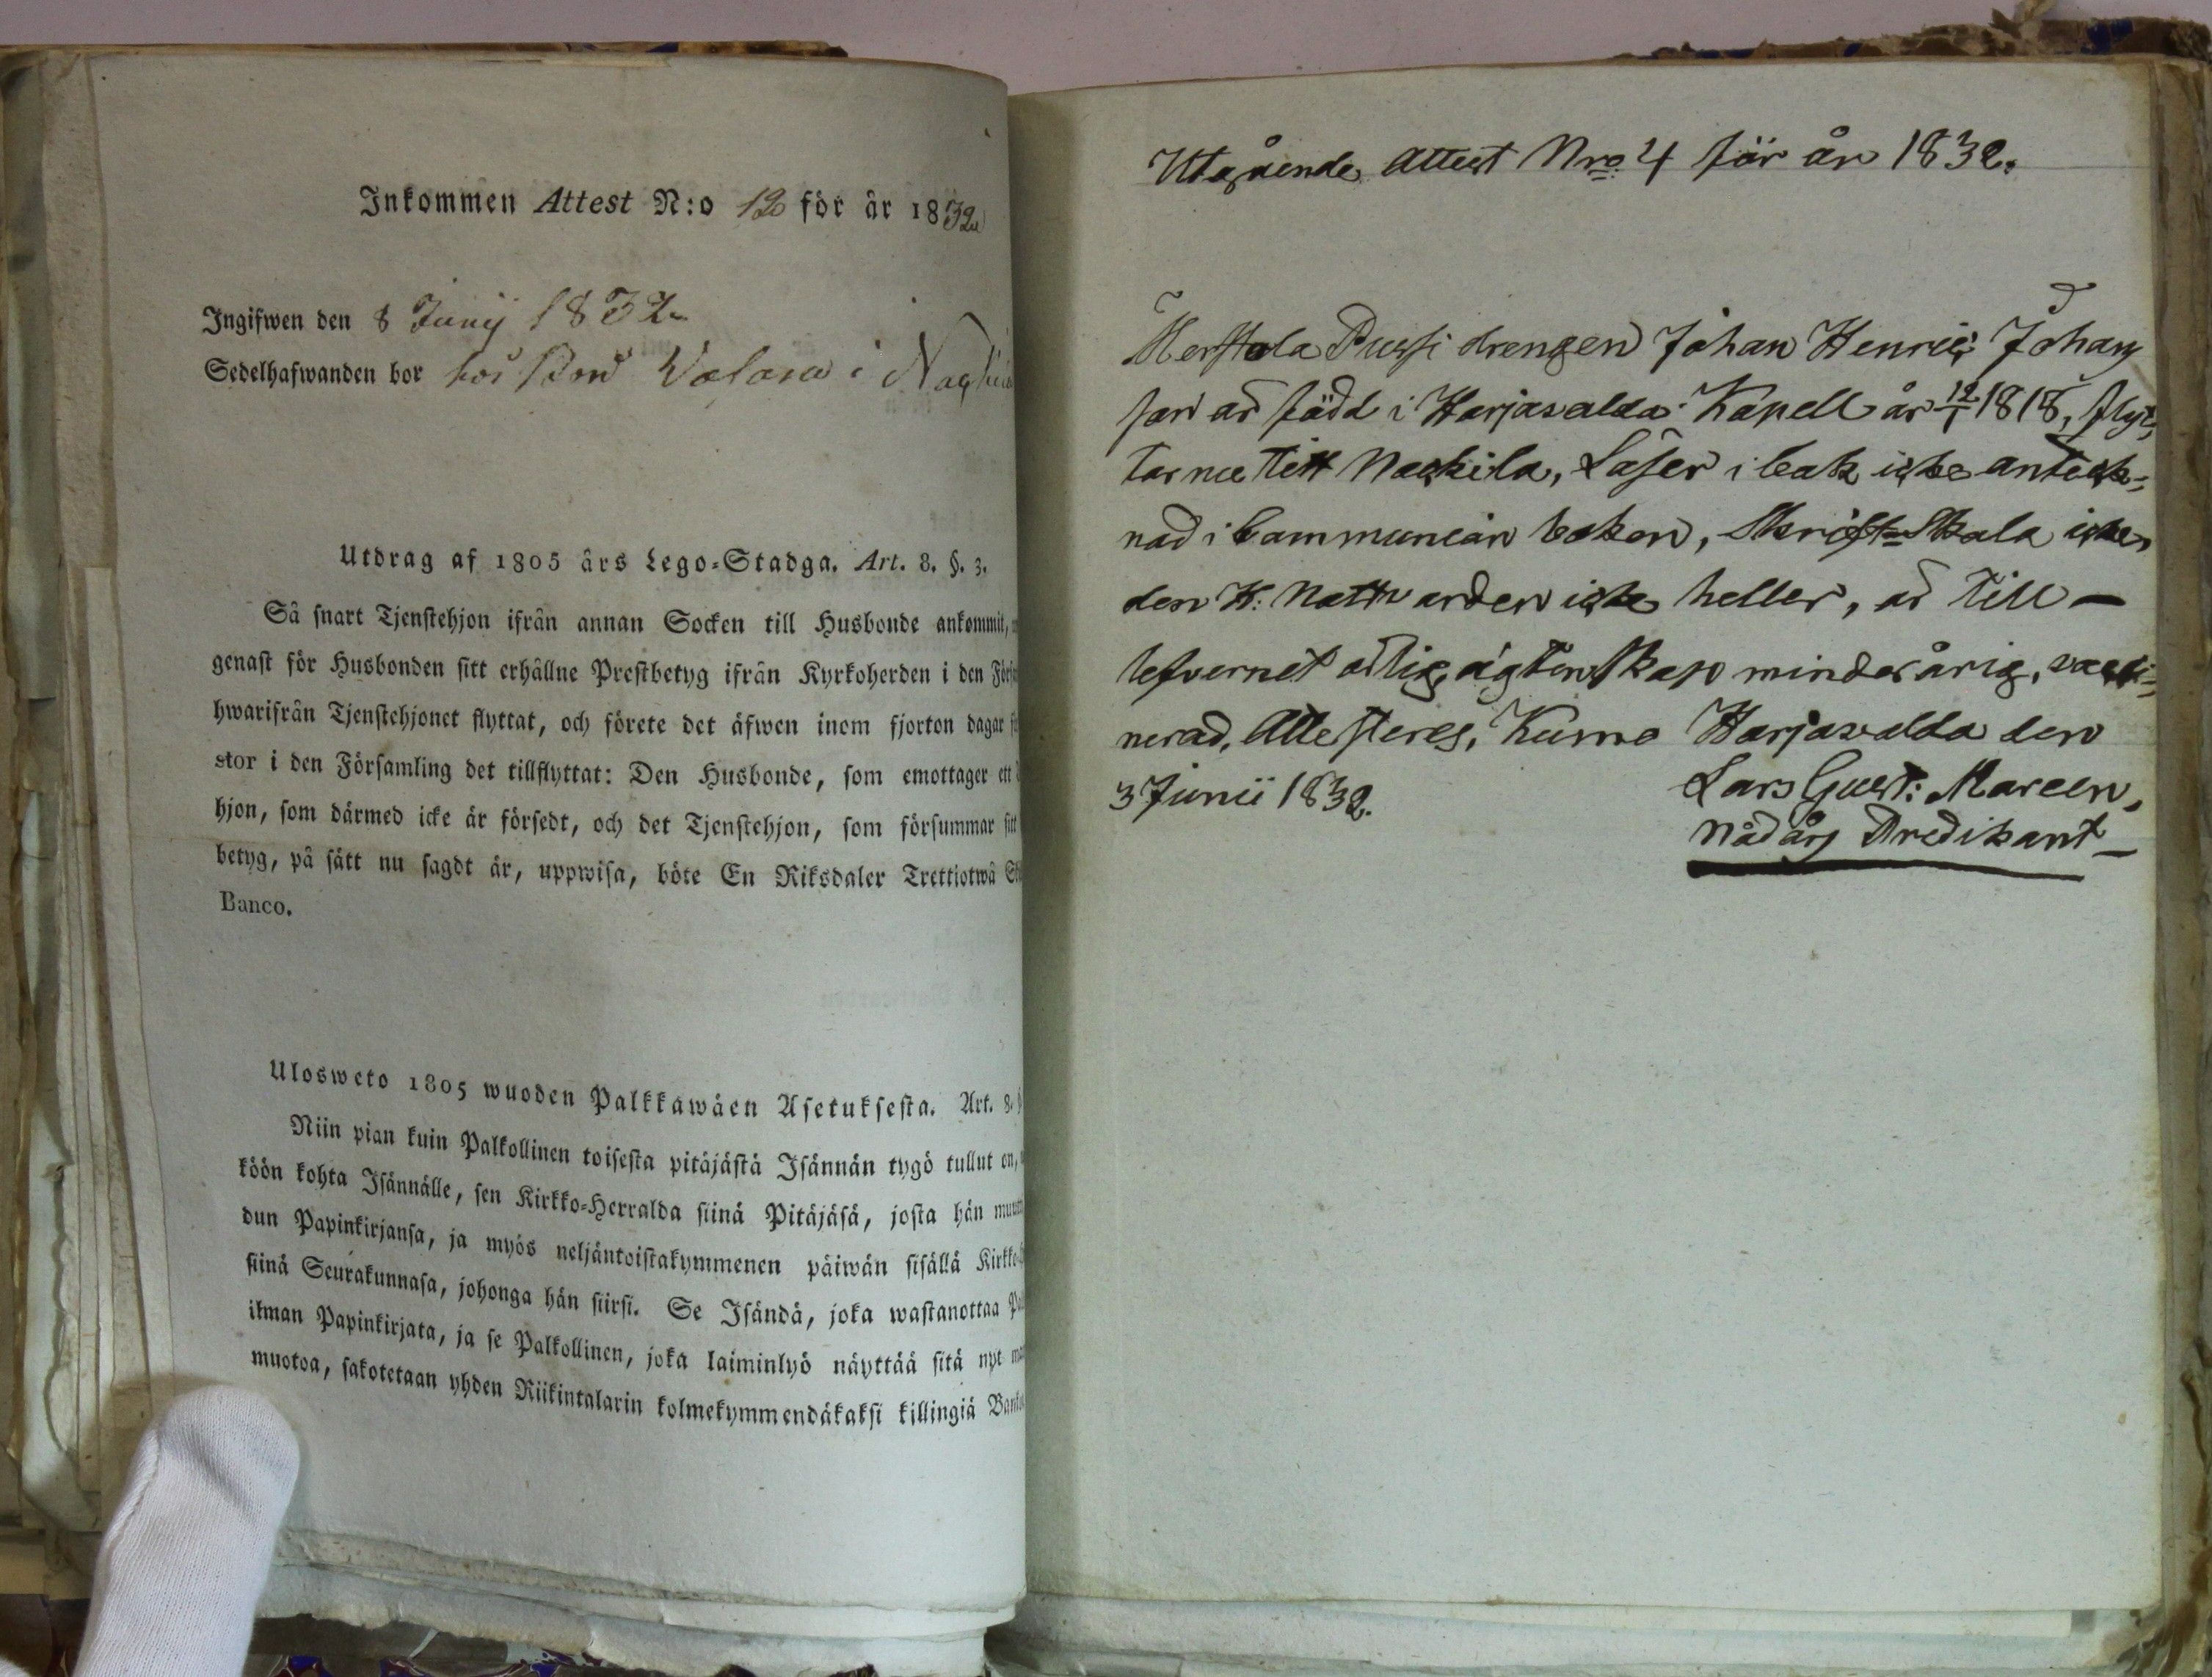 Inkommen Attest N:o 12 för år 1832
Ingifwen den 8 Junij 1832
Sedelhafwanden bor hos Bond Walara i
Utdrag af 1805 års Lego-Stadga. Art. 8. §. 3.
Så snart Tjenstehjon ifrån annan Socken till Husbonde ankommit,
genast för Husbonden sitt erhållne Prestbetyg ifrån Kyrkoherden i den
hwarifrån Tjenstehjonet flyttat, och förete det äfwen inom fjorton dagar
stor i den Församling det tillflyttat: Den Husbonde, som emottager ett
hjon, som därmed icke är försedt, och det Tjenstehjon, som försummar sitt
betyg, på sätt nu sagdt är, uppwisa, böte En Riksdaler Trettiotwå
Banco.
Ulosweto 1805 wuoden Palkkawäen Asetuksesta. Art. 8.
Niin pian kuin Palkollinen toisesta pitäjästä Isännän tygö tullut on,
köön kohta Isännälle, sen Kirkko-Herralda siinä Pitäjäsä, josta hän
dun Papinkirjansa, ja myös neljäntoistakymmenen päiwän sisällä
siinä Seurakunnasa, johonga hän siirsi. Se Isändä, joka wastanottaa
ilman Papinkirjata, ja se Palkollinen, joka laiminlyö näyttää sitä nyt
muotoa, sakotetaan yhden Riikintalarin kolmekymmendäkaksi killingiä
Utgående Attest Nro 4 för år 1832.
Merstola Pussi drengen Johan Henric Johans
son är född i Harjavalda Kapell år 12/1 1818, flyt,
tar nu till Nackila, Läser i bok icke anteck=
nad i Communion boken, Skrift=Skola icke,
den H: Nattvarden icke heller, är till —
lefvernet ärlig, ägtenskap minderårig, vacci=
nerad, Attesteres, Kumo Harjavalda den
3 Junii 1832.
Lars Gust: Mareen,
Nådårs Predikant